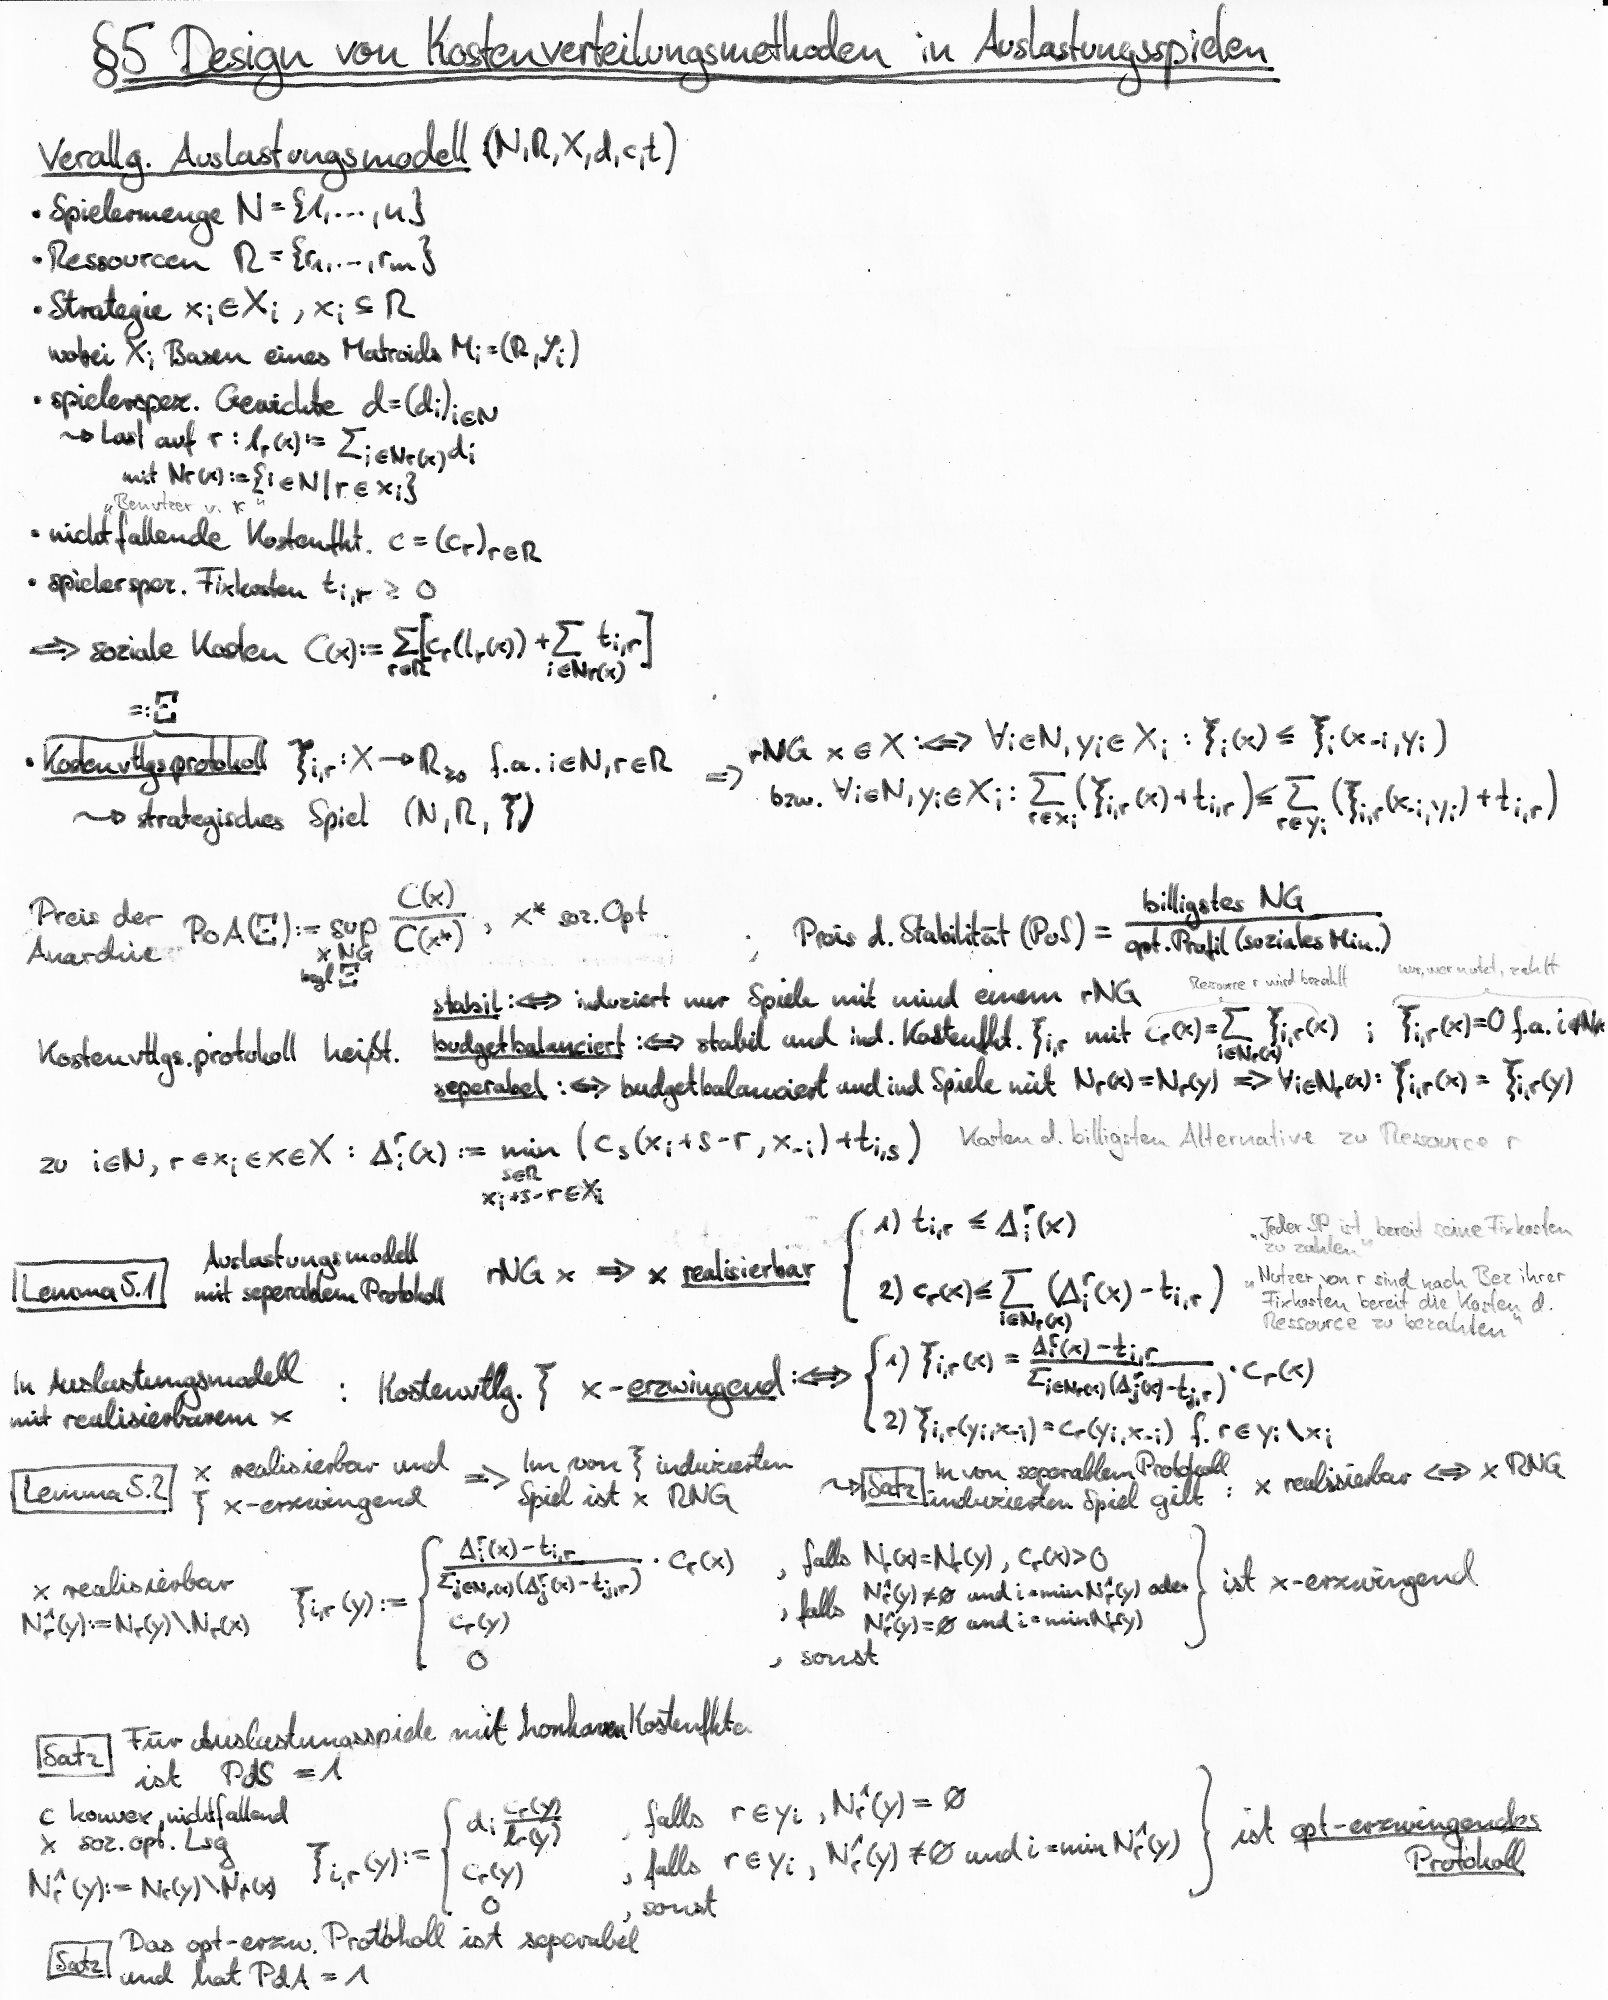 §5 Design von Kostenverteilungsmethoden in Auslastungsspielen
Verallg. Auslastungsmodell (N,R,X,d,c,t)
• Spielermenge N = {1,...,n}
• Ressourcen R = {r₁,...,rₘ}
• Strategie xᵢ ∈ Xᵢ , xᵢ ⊆ R
wobei Xᵢ Basen eines Matroids Mᵢ = (R, 𝒮ᵢ)
• spielerspez. Gewichte d = (dᵢ)_{i∈N}
⇝ Last auf r : l_r(x) := ∑_{i∈N_r(x)} dᵢ
mit N_r(x) := {i ∈ N | r ∈ xᵢ}
„Benutzer v. r"
• nichtfallende Kostenfkt. c = (c_r)_{r∈R}
• spielerspez. Fixkosten t_{i,r} ≥ 0
⟹ soziale Kosten C(x) := ∑_{r∈R} [c_r(l_r(x)) + ∑_{i∈N_r(x)} t_{i,r}]
=: Ξ
• Kostenvtlgsprotokoll ξ_{i,r} : X → ℝ_{≥0} f.a. i∈N, r∈R
⇝ strategisches Spiel (N, R, ξ)
⟹ rNG x ∈ X :⟺ ∀i∈N, yᵢ∈Xᵢ : ξᵢ(x) ≤ ξᵢ(x₋ᵢ,yᵢ)
bzw. ∀i∈N, yᵢ∈Xᵢ : ∑_{r∈xᵢ} (ξ_{i,r}(x) + t_{i,r}) ≤ ∑_{r∈yᵢ} (ξ_{i,r}(x₋ᵢ,yᵢ) + t_{i,r})
Preis der Anarchie PoA(Ξ) := sup_{x NG bzgl Ξ} C(x)/C(x*) , x* soz. Opt
; Preis d. Stabilität (PoS) = billigstes NG / opt. Profil (soziales Min.)
Kostenvtlgs.protokoll heißt.
stabil :⟺ induziert nur Spiele mit mind einem rNG
Ressource r wird bezahlt
nur, wer nutzt, zahlt
budgetbalanciert :⟺ stabil und ind. Kostenfkt. ξ_{i,r} mit c_r(x) = ∑_{i∈N_r(x)} ξ_{i,r}(x) ; ξ_{i,r}(x) = 0 f.a. i∉N_r
seperabel :⟺ budgetbalanciert und ind Spiele mit N_r(x) = N_r(y) ⟹ ∀i∈N_r(x) : ξ_{i,r}(x) = ξ_{i,r}(y)
zu i∈N, r∈xᵢ∈x∈X : Δᵢʳ(x) := min_{s∈R, xᵢ+s-r∈Xᵢ} (c_s(xᵢ+s-r, x₋ᵢ) + t_{i,s}) Kosten d. billigsten Alternative zu Ressource r
Lemma 5.1 Auslastungsmodell mit seperablem Protokoll rNG x ⟹ x realisierbar
1) t_{i,r} ≤ Δᵢʳ(x) „Jeder SP ist bereit seine Fixkosten zu zahlen"
2) c_r(x) ≤ ∑_{i∈N_r(x)} (Δᵢʳ(x) - t_{i,r}) „Nutzer von r sind nach Bez ihrer Fixkosten bereit die Kosten d. Ressource zu bezahlen"
In Auslastungsmodell mit realisierbarem x : Kostenvtlg. ξ x-erzwingend :⟺
1) ξ_{i,r}(x) = (Δᵢʳ(x) - t_{i,r}) / (∑_{i∈N_r(x)} (Δⱼʳ(x) - t_{j,r})) · c_r(x)
2) ξ_{i,r}(yᵢ,x₋ᵢ) = c_r(yᵢ,x₋ᵢ) f. r ∈ yᵢ \ xᵢ
Lemma 5.2 x realisierbar und ξ x-erzwingend ⟹ Im von ξ induzierten Spiel ist x RNG
⇝ Satz In von seperablem Protokoll induzierten Spiel gilt : x realisierbar ⟺ x RNG
x realisierbar
N_r¹(y) := N_r(y) \ N_r(x)
ξ_{i,r}(y) :=
(Δᵢʳ(x) - t_{i,r}) / (∑_{j∈N_r(x)} (Δⱼʳ(x) - t_{j,r})) · c_r(x) , falls N_r(x) = N_r(y), c_r(x) > 0
c_r(y) , falls N_r¹(y) ≠ ∅ und i = min N_r¹(y) oder N_r¹(y) = ∅ und i = min N_r(y)
0 , sonst
ist x-erzwingend
Satz Für Auslastungsspiele mit konkaven Kostenfktn
ist PdS = 1
c konvex, nichtfallend
x soz. opt. Lsg
N_r¹(y) := N_r(y) \ N_r(x)
ξ_{i,r}(y) :=
dᵢ c_r(y)/l_r(y) , falls r ∈ yᵢ , N_r¹(y) = ∅
c_r(y) , falls r ∈ yᵢ , N_r¹(y) ≠ ∅ und i = min N_r¹(y)
0 , sonst
ist opt-erzwingendes Protokoll
Satz Das opt-erzw. Protokoll ist seperabel
und hat PdA = 1